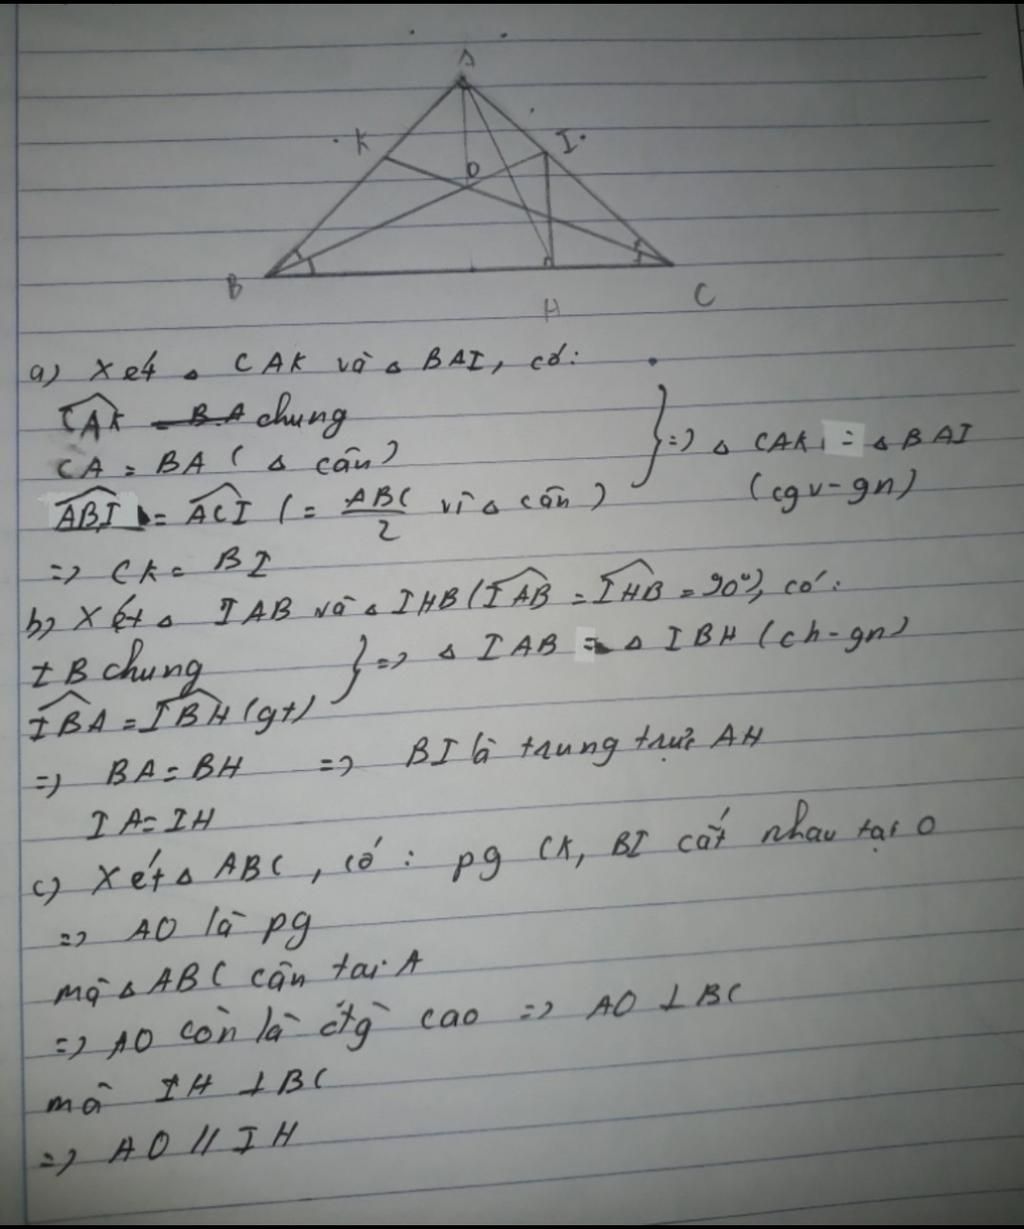 A
K
I
O
B
H
C
a) Xét △ CAK và △ BAI, có:
CAK chung
CA = BA (△ cân)
ABI = ACI (= ABC/2 vì △ cân)
=> △ CAK = △ BAI
(cgv-gn)
=> CK = BI
b) Xét △ IAB và △ IHB (IAB = IHB = 90°), có:
IB chung
IBA = IBH (gt)
=> △ IAB = △ IBH (ch-gn)
=> BA = BH => BI là trung trực AH
IA = IH
c) Xét △ ABC, có: pg CK, BI cắt nhau tại O
=> AO là pg
mà △ ABC cân tại A
=> AO còn là đg cao => AO ⊥ BC
mà IH ⊥ BC
=> AO // IH